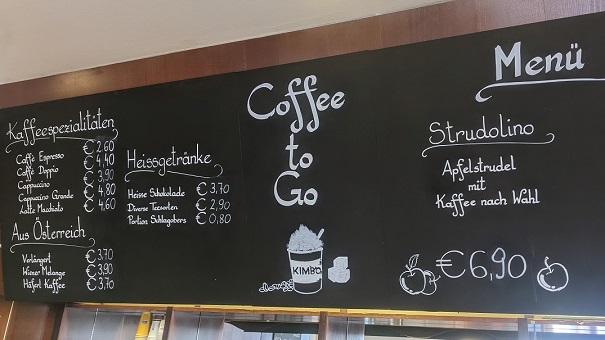 Kaffeespezialitäten
Caffè Espresso €2,60
Caffè Doppio €4,40
Cappuccino €3,90
Cappuccino Grande €4,80
Latte Machiato €4,60
Aus Österreich
Verlängert €3,70
Wiener Melange €3,90
Häferl Kaffee €3,70
Heissgetränke
Heisse Schokolade €3,70
Diverse Teesorten €2,90
Portion Schlagobers €0,80
Coffee
to
Go
KIMBO
Menü
Strudolino
Apfelstrudel
mit
Kaffee nach Wahl
€6,90